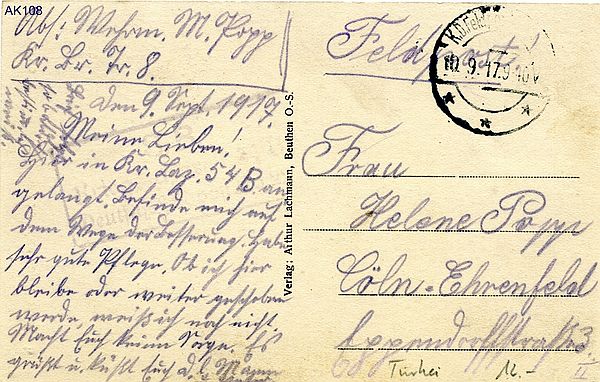 AK108
Abs: Wehrm. M. Popp
Kr. Br. Tr. 8.
Den 9. Sept. 1917.
Meine Lieben!
in Kr. Laz. 54 B an
gelangt. Befinde mich auf
dem Wege der Besserung. Habe
sehr gute Pflege. Ob ich hier
bleibe oder weiter geschoben
werde, weiß ich noch nicht.
Macht Euch keine Sorge. Es
grüßt u. küßt Euch
Verlag: Arthur Lachmann, Beuthen O.-S.
Feldpost!
10.9.17.9-10V
Frau
Helene Popp
Cöln-Ehrenfeld
3.
II
Türkei 12.-